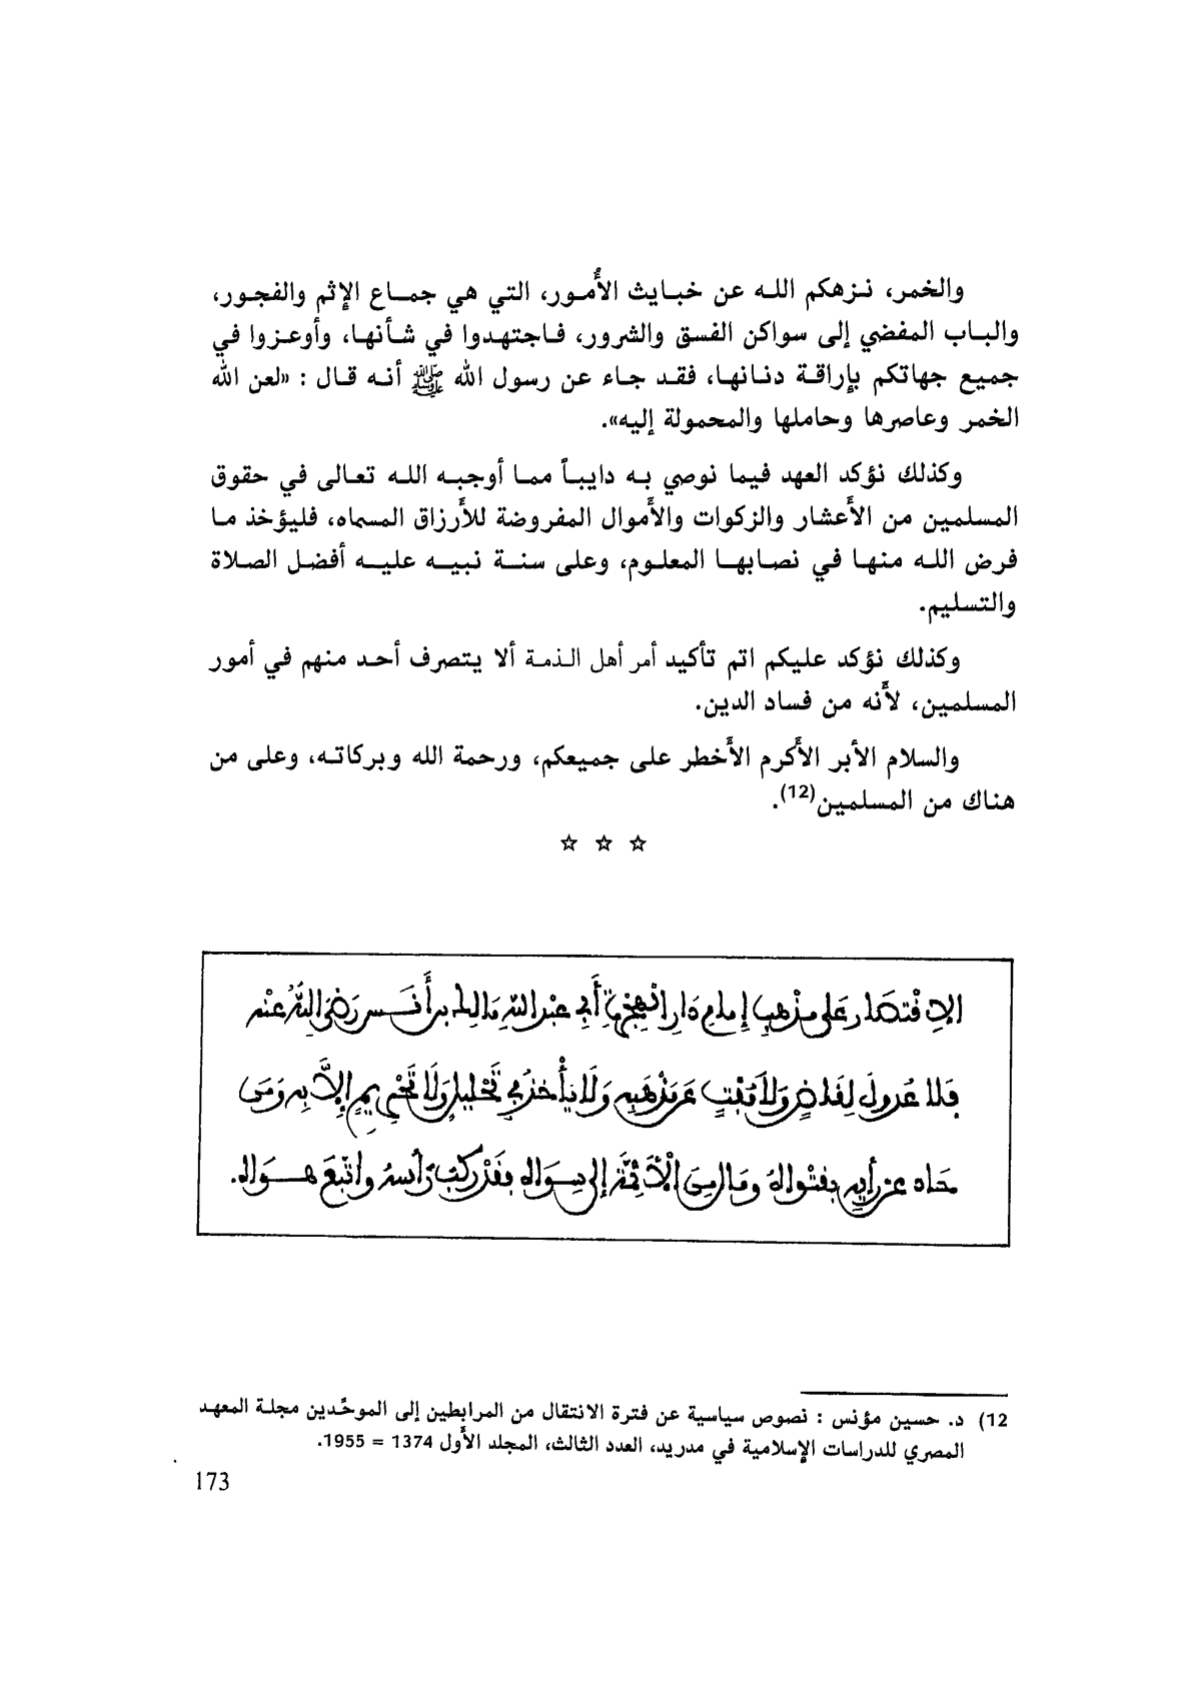 والخمر، نزهكم الله عن خبايث الأُمور، التي هي جماع الإثم والفجور،
والباب المفضي إلى سواكن الفسق والشرور، فاجتهدوا في شأنها، وأوعزوا في
جميع جهاتكم بإراقة دنانها، فقد جاء عن رسول الله ﷺ أنه قال : «لعن الله
الخمر وعاصرها وحاملها والمحمولة إليه».
وكذلك نؤكد العهد فيما نوصي به دايباً مما أوجبه الله تعالى في حقوق
المسلمين من الأعشار والزكوات والأموال المفروضة للأرزاق المسماه، فليؤخذ ما
فرض الله منها في نصابها المعلوم، وعلى سنة نبيه عليه أفضل الصلاة
والتسليم.
وكذلك نؤكد عليكم اتم تأكيد أمر أهل الذمة ألا يتصرف أحد منهم في أمور
المسلمين، لأنه من فساد الدين.
والسلام الأبر الأكرم الأخطر على جميعكم، ورحمة الله وبركاته، وعلى من
هناك من المسلمين(12).
☆ ☆ ☆
الاِقْتصَار عَلى مذْهبِ إمامِ دَارِ الهِجْرَةِ أَبِي عَبْدِ اللّهِ مَالِك بن أَنَس رَضِيَ اللَّهُ عَنْه
فَلا عُدولَ لِقَاضٍ وَلاَ مُفْتٍ عَن مَذْهَبِه وَلَا يَأْخذُ فِي تَحْليلٍ وَلَا تَحْرِيمٍ إِلاَّ بِه وَمَن
حَاد عن رأيِه بفتْواهُ وَمَال مِنَ الْأَئِمَّة إلى سِوَاه فقَدْ ركبَ رَأسهُ واتَّبعَ هَوَاه.
12) د. حسين مؤنس : نصوص سياسية عن فترة الانتقال من المرابطين إلى الموحِّدين مجلة المعهد
المصري للدراسات الإسلامية في مدريد، العدد الثالث، المجلد الأول 1374 = 1955.
173